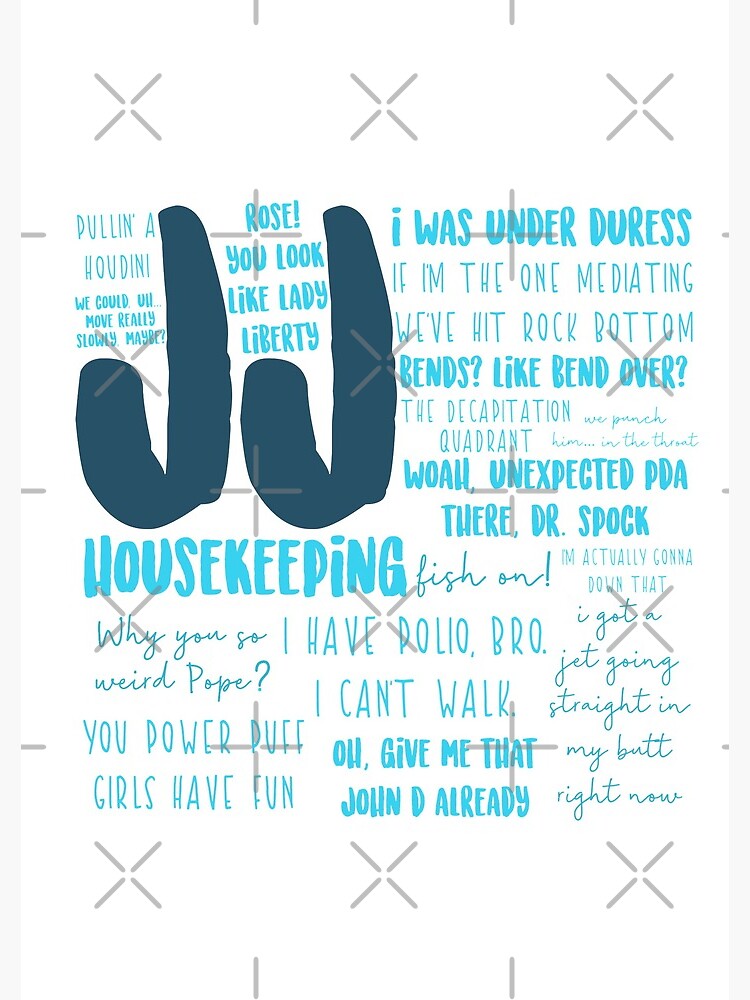 PULLIN' A
HOUDINI
WE COULD, UH...
MOVE REALLY
SLOWLY, MAYBE?
JJ
ROSE!
YOU LOOK
LIKE LADY
LIBERTY
I WAS UNDER DURESS
IF I'M THE ONE MEDIATING
WE'VE HIT ROCK BOTTOM
BENDS? LIKE BEND OVER?
THE DECAPITATION
QUADRANT
we punch
him... in the throat
WOAH, UNEXPECTED PDA
THERE, DR. SPOCK
HOUSEKEEPING
fish on!
I'M ACTUALLY GONNA
DOWN THAT
Why you so
weird Pope?
I HAVE POLIO, BRO.
I CAN'T WALK.
i got a
jet going
straight in
my butt
right now
YOU POWER PUFF
GIRLS HAVE FUN
OH, GIVE ME THAT
JOHN D ALREADY